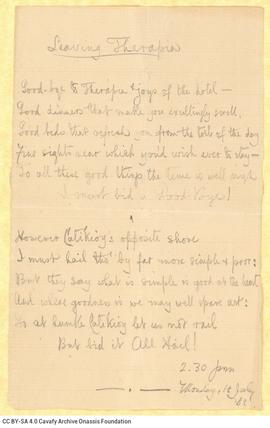 Leaving Therapia
Good-bye to Therapia & joys of the hotel —
Good dinners that make you exultingly swell,
Good beds that refresh you from the toil of the day
Fine sights near which you'd wish ever to stay —
To all these good things the time is well nigh
I must bid a Good Bye!
However Catikioy's opposite shore
I must hail tho' by far more simple & poor:
But they say what is simple is good at the heart
And where goodness is we may well spare art:
So at humble Catikioy let us not rail
But bid it All Hail!
2.30 pm
Monday, July
82
CC BY-SA 4.0 Cavafy Archive Onassis Foundation